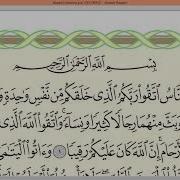 بِسْمِ ٱللَّهِ ٱلرَّحْمَٰنِ ٱلرَّحِيمِ
نَّاسُ ٱتَّقُوا۟ رَبَّكُمُ ٱلَّذِى خَلَقَكُم مِّن نَّفْسٍ وَٰحِدَةٍ وَ
وَبَثَّ مِنْهُمَا رِجَالًا كَثِيرًا وَنِسَآءً وَٱتَّقُوا۟ ٱللَّهَ ٱلَّذِى
ٱلْأَرْحَامَ إِنَّ ٱللَّهَ كَانَ عَلَيْكُمْ رَقِيبًا ١ وَءَاتُوا۟ ٱلْيَتَٰمَىٰ